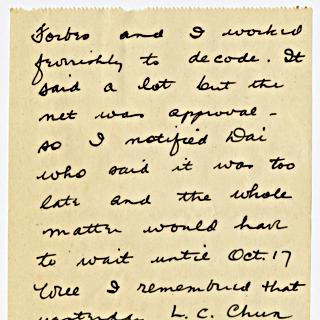 Forbes and I worked
feverishly to decode. It
said a lot but the
net was approval -
so I notified Dai
who said it was too
late and the whole
matter would have
to wait until Oct. 17
Well I remembered that
yesterday L. C. Chun